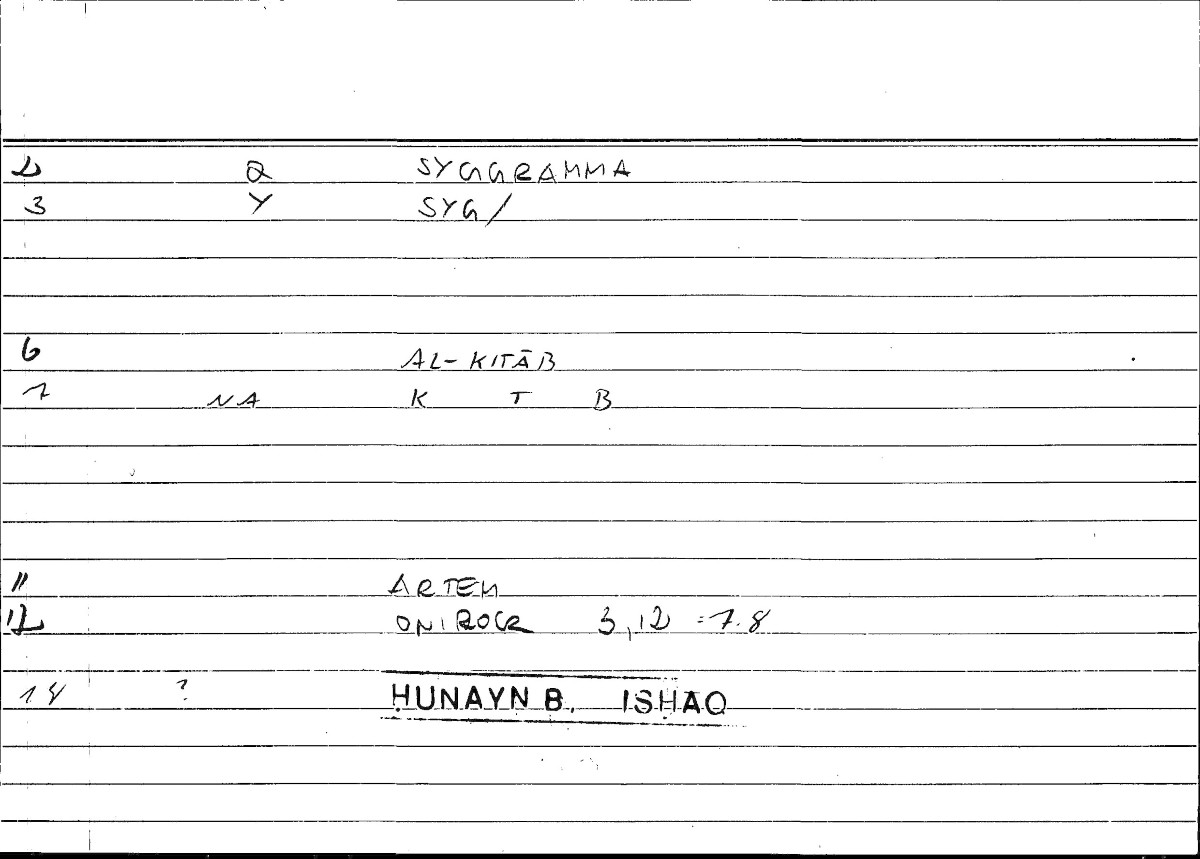 2 Q SYGGRAMMA
3 Y SYG/
6 AL-KITĀB
7 NA K T B
11 ARTEM
12 ONIROCR 3,12 = 7.8
14 ? HUNAYN B. ISHAQ